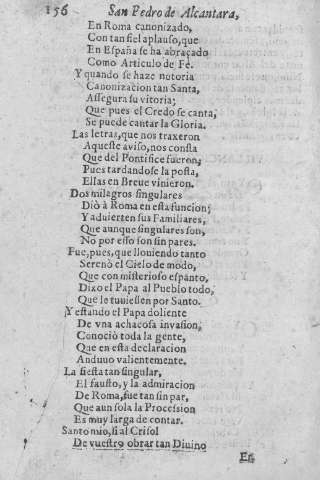 156 San Pedro de Alcantara,
En Roma canonizado,
Con tan fiel aplauso, que
En España se ha abraçado
Como Articulo de Fè.
Y quando se haze notoria
Canonizacion tan Santa,
Assegura su vitoria;
Que pues el Credo se canta,
Se puede cantar la Gloria.
Las letras, que nos traxeron
Aqueste aviso, nos consta
Que del Pontifice fueron,
Pues tardandose la posta,
Ellas en Breue vinieron.
Dos milagros singulares
Diò à Roma en esta funcion;
Y aduierten sus Familiares,
Que aunque singulares son,
No por esso son sin pares.
Fue, pues, que llouiendo tanto
Serenò el Cielo de modo,
Que con misterioso espanto,
Dixo el Papa al Pueblo todo,
Que le tuuiessen por Santo.
Y estando el Papa doliente
De vna achacosa inuasion,
Conociò toda la gente,
Que en esta declaracion
Anduuo valientemente.
La fiesta tan singular,
El fausto, y la admiracion
De Roma, fue tan sin par,
Que aun sola la Procession
Es muy larga de contar.
Santo mio, si al Crisol
De vuestro obrar tan Diuino
En